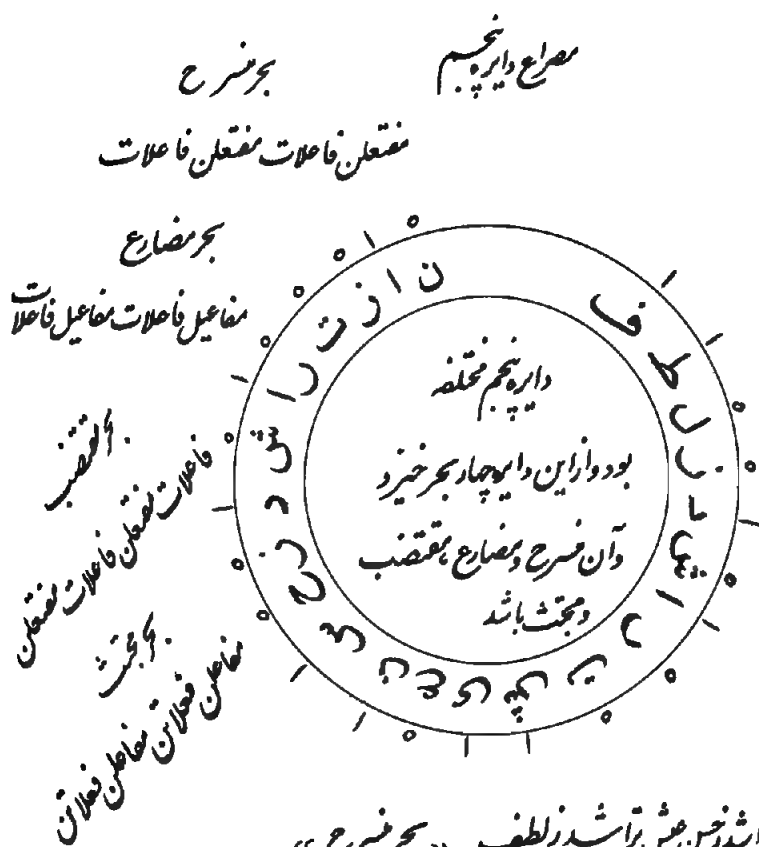 مصراع دایره پنجم
بحر منسرح
مفتعلن فاعلات مفتعلن فاعلات
بحر مضارع
مفاعیل فاعلات مفاعیل فاعلات
بحر مقتضب
فاعلات مفتعلن فاعلات مفتعلن
بحر مجتث
مفاعلن فعلاتن مفاعلن فعلاتن
ن ا ز ت ر ا ش د ز ح س ن ع ی ش ت ر ا ش د ز ل ط ف
دایره پنجم مختلفه
بود و از این دایره چهار بحر خیزد
و آن منسرح و مضارع و مقتضب
و مجتث باشد
شد ز حسن عیش ترا شد ز لطف بحر منسرح